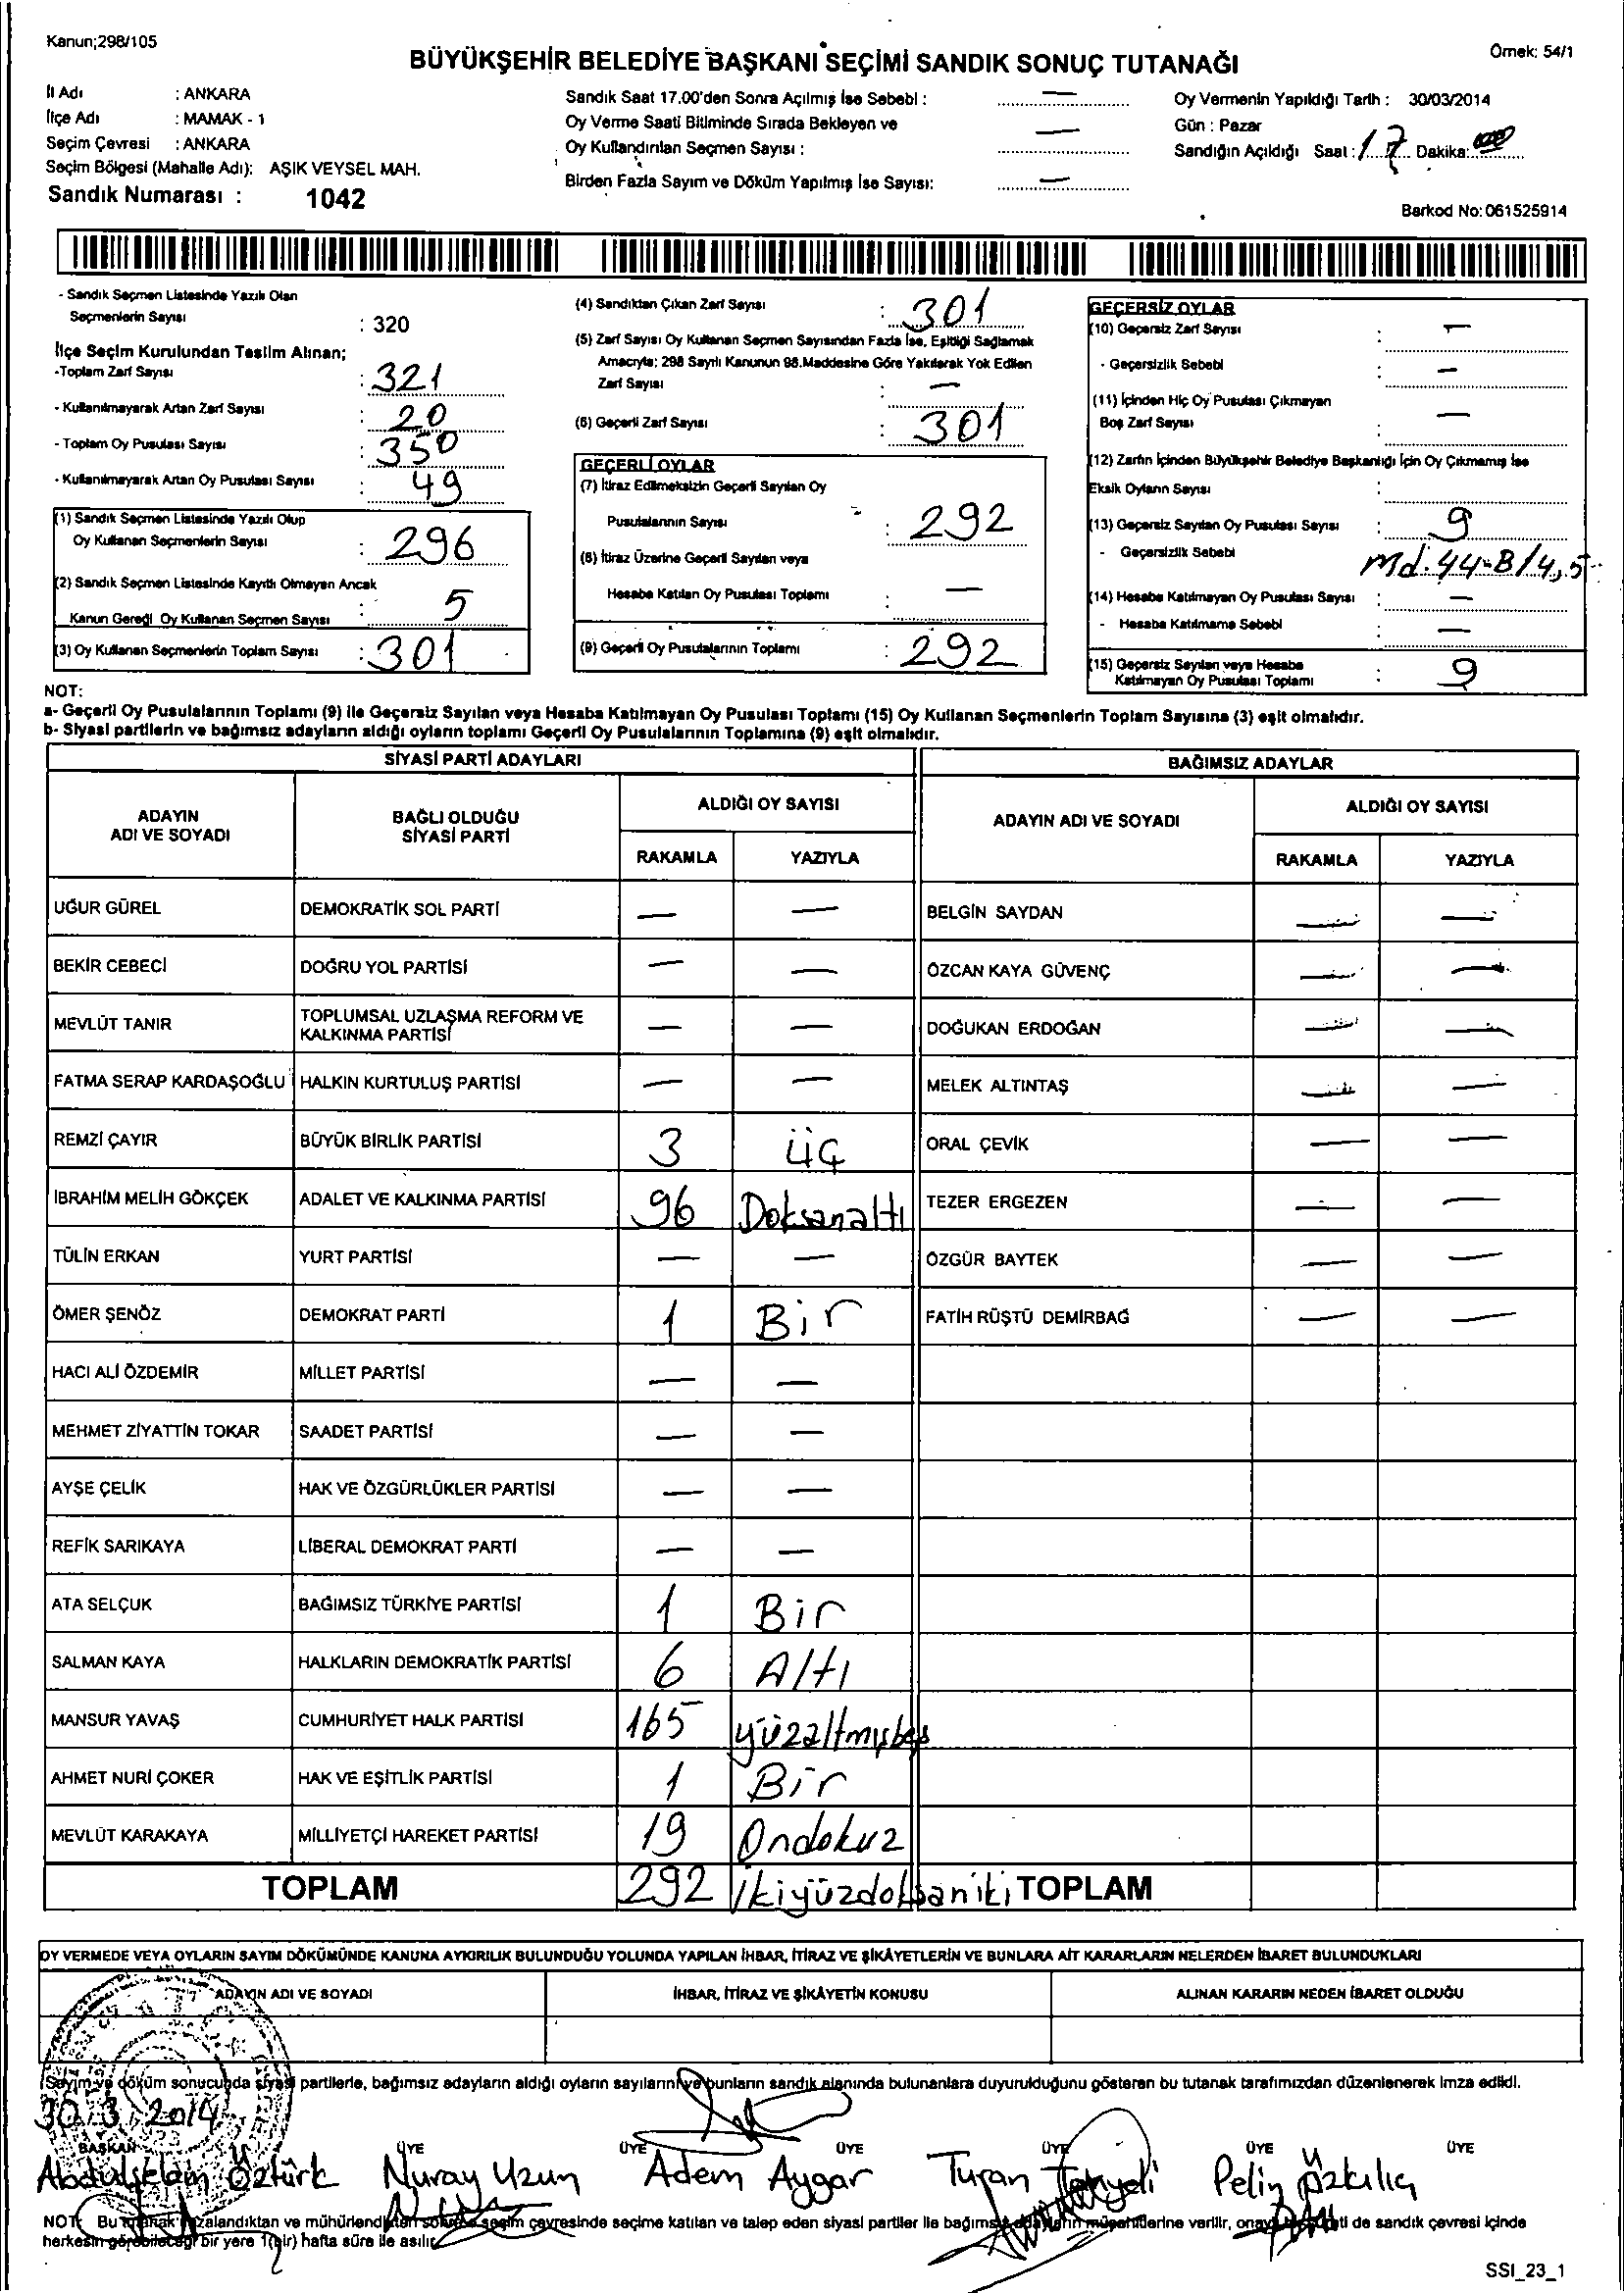 Kanun;298/105
BÜYÜKŞEHİR BELEDİYE BAŞKANI SEÇİMİ SANDIK SONUÇ TUTANAĞI
Örnek: 54/1
İl Adı : ANKARA
İlçe Adı : MAMAK - 1
Seçim Çevresi : ANKARA
Seçim Bölgesi (Mahalle Adı): AŞIK VEYSEL MAH.
Sandık Numarası : 1042
Sandık Saat 17.00'den Sonra Açılmış İse Sebebi : —
Oy Verme Saati Bitiminde Sırada Bekleyen ve
Oy Kullandırılan Seçmen Sayısı : —
Birden Fazla Sayım ve Döküm Yapılmış İse Sayısı: —
Oy Vermenin Yapıldığı Tarih : 30/03/2014
Gün : Pazar
Sandığın Açıldığı Saat : 17 Dakika:
Barkod No: 061525914
- Sandık Seçmen Listesinde Yazılı Olan
Seçmenlerin Sayısı : 320
İlçe Seçim Kurulundan Teslim Alınan;
-Toplam Zarf Sayısı : 321
- Kullanılmayarak Artan Zarf Sayısı : 20
- Toplam Oy Pusulası Sayısı : 350
- Kullanılmayarak Artan Oy Pusulası Sayısı : 49
(1) Sandık Seçmen Listesinde Yazılı Olup
Oy Kullanan Seçmenlerin Sayısı : 296
(2) Sandık Seçmen Listesinde Kayıtlı Olmayan Ancak
Kanun Gereği Oy Kullanan Seçmen Sayısı : 5
(3) Oy Kullanan Seçmenlerin Toplam Sayısı : 301
(4) Sandıktan Çıkan Zarf Sayısı : 301
(5) Zarf Sayısı Oy Kullanan Seçmen Sayısından Fazla İse, Eşitliği Sağlamak
Amacıyla; 298 Sayılı Kanunun 98.Maddesine Göre Yakılarak Yok Edilen
Zarf Sayısı : —
(6) Geçerli Zarf Sayısı : 301
GEÇERLİ OYLAR
(7) İtiraz Edilmeksizin Geçerli Sayılan Oy
Pusulalarının Sayısı : 292
(8) İtiraz Üzerine Geçerli Sayılan veya
Hesaba Katılan Oy Pusulası Toplamı : —
(9) Geçerli Oy Pusulalarının Toplamı : 292
GEÇERSİZ OYLAR
(10) Geçersiz Zarf Sayısı : —
- Geçersizlik Sebebi : —
(11) İçinden Hiç Oy Pusulası Çıkmayan
Boş Zarf Sayısı : —
(12) Zarfın İçinden Büyükşehir Belediye Başkanlığı İçin Oy Çıkmamış İse
Eksik Oyların Sayısı :
(13) Geçersiz Sayılan Oy Pusulası Sayısı : 9
- Geçersizlik Sebebi Md. 44-B/4,5
(14) Hesaba Katılmayan Oy Pusulası Sayısı : —
- Hesaba Katılmama Sebebi : —
(15) Geçersiz Sayılan veya Hesaba
Katılmayan Oy Pusulası Toplamı : 9
NOT:
a- Geçerli Oy Pusulalarının Toplamı (9) ile Geçersiz Sayılan veya Hesaba Katılmayan Oy Pusulası Toplamı (15) Oy Kullanan Seçmenlerin Toplam Sayısına (3) eşit olmalıdır.
b- Siyasi partilerin ve bağımsız adayların aldığı oyların toplamı Geçerli Oy Pusulalarının Toplamına (9) eşit olmalıdır.
SİYASİ PARTİ ADAYLARI BAĞIMSIZ ADAYLAR
ADAYIN ADI VE SOYADI BAĞLI OLDUĞU SİYASİ PARTİ ALDIĞI OY SAYISI ADAYIN ADI VE SOYADI ALDIĞI OY SAYISI
RAKAMLA YAZIYLA RAKAMLA YAZIYLA
UĞUR GÜREL DEMOKRATİK SOL PARTİ — — BELGİN SAYDAN — —
BEKİR CEBECİ DOĞRU YOL PARTİSİ — — ÖZCAN KAYA GÜVENÇ — —
MEVLÜT TANIR TOPLUMSAL UZLAŞMA REFORM VE KALKINMA PARTİSİ — — DOĞUKAN ERDOĞAN — —
FATMA SERAP KARDAŞOĞLU HALKIN KURTULUŞ PARTİSİ — — MELEK ALTINTAŞ — —
REMZİ ÇAYIR BÜYÜK BİRLİK PARTİSİ 3 üç ORAL ÇEVİK — —
İBRAHİM MELİH GÖKÇEK ADALET VE KALKINMA PARTİSİ 96 Doksanaltı TEZER ERGEZEN — —
TÜLİN ERKAN YURT PARTİSİ — — ÖZGÜR BAYTEK — —
ÖMER ŞENÖZ DEMOKRAT PARTİ 1 Bir FATİH RÜŞTÜ DEMİRBAĞ — —
HACI ALİ ÖZDEMİR MİLLET PARTİSİ — —
MEHMET ZİYATTİN TOKAR SAADET PARTİSİ — —
AYŞE ÇELİK HAK VE ÖZGÜRLÜKLER PARTİSİ — —
REFİK SARIKAYA LİBERAL DEMOKRAT PARTİ — —
ATA SELÇUK BAĞIMSIZ TÜRKİYE PARTİSİ 1 Bir
SALMAN KAYA HALKLARIN DEMOKRATİK PARTİSİ 6 Altı
MANSUR YAVAŞ CUMHURİYET HALK PARTİSİ 165 yüzaltmışbeş
AHMET NURİ ÇOKER HAK VE EŞİTLİK PARTİSİ 1 Bir
MEVLÜT KARAKAYA MİLLİYETÇİ HAREKET PARTİSİ 19 Ondokuz
TOPLAM 292 ikiyüzdoksaniki TOPLAM
OY VERMEDE VEYA OYLARIN SAYIM DÖKÜMÜNDE KANUNA AYKIRILIK BULUNDUĞU YOLUNDA YAPILAN İHBAR, İTİRAZ VE ŞİKÂYETLERİN VE BUNLARA AİT KARARLARIN NELERDEN İBARET BULUNDUKLARI
ADAYIN ADI VE SOYADI İHBAR, İTİRAZ VE ŞİKÂYETİN KONUSU ALINAN KARARIN NEDEN İBARET OLDUĞU
Sayım ve döküm sonucunda siyasi partilerle, bağımsız adayların aldığı oyların sayılarını ve bunların sandık alanında bulunanlara duyurulduğunu gösteren bu tutanak tarafımızdan düzenlenerek imza edildi.
30/3/2014
BAŞKAN ÜYE ÜYE ÜYE ÜYE ÜYE ÜYE
Abdulselam Öztürk Nuray Uzun Adem Aygar Turan Tekyeli Pelin Özkılıç
NOT: Bu tutanak imzalandıktan ve mühürlendikten sonra seçim çevresinde seçime katılan ve talep eden siyasi partiler ile bağımsız adayların müşahitlerine verilir, onaylı sureti de sandık çevresi içinde
herkesin görebileceği bir yere 1(bir) hafta süre ile asılır.
SSI_23_1